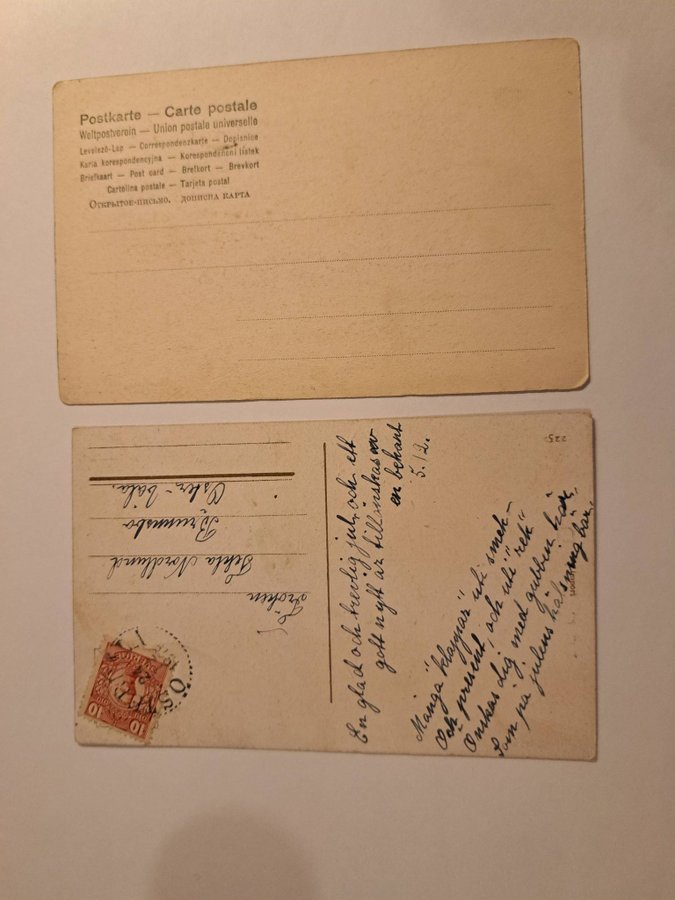 Postkarte — Carte postale
Weltpostverein — Union postale universelle
Levelező-Lap — Correspondenzkarte — Dopisnice
Karta korespondencyjna — Korespondenční lístek
Briefkaart — Post card — Brefkort — Brevkort
Cartolina postale — Tarjeta postal
Открытое-письмо. дописна карта
225.
En glad och trevlig jul, och ett
gott nytt år tillönskas av
en bekant
S. D.
Många "klappar" uti smek-
Och present, och uti "rek"
Önskas dig med gubben här,
Som på julens hälsning bär.
Fröken
Tekla Nordlund
Brunnsbo
Öster-våla.
10
10